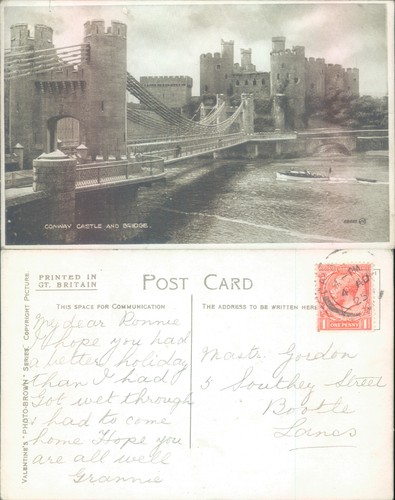 CONWAY CASTLE AND BRIDGE.
PRINTED IN
GT. BRITAIN
POST CARD
THIS SPACE FOR COMMUNICATION
THE ADDRESS TO BE WRITTEN HERE
VALENTINE'S "PHOTO-BROWN" SERIES. COPYRIGHT PICTURE.
My dear Ronnie
I hope you had
a better holiday
than I had
Got wet through
& had to come
home Hope you
are all well
Grannie
Mastr. Gordon
5 Southey Street
Bootle
Lancs
ONE PENNY